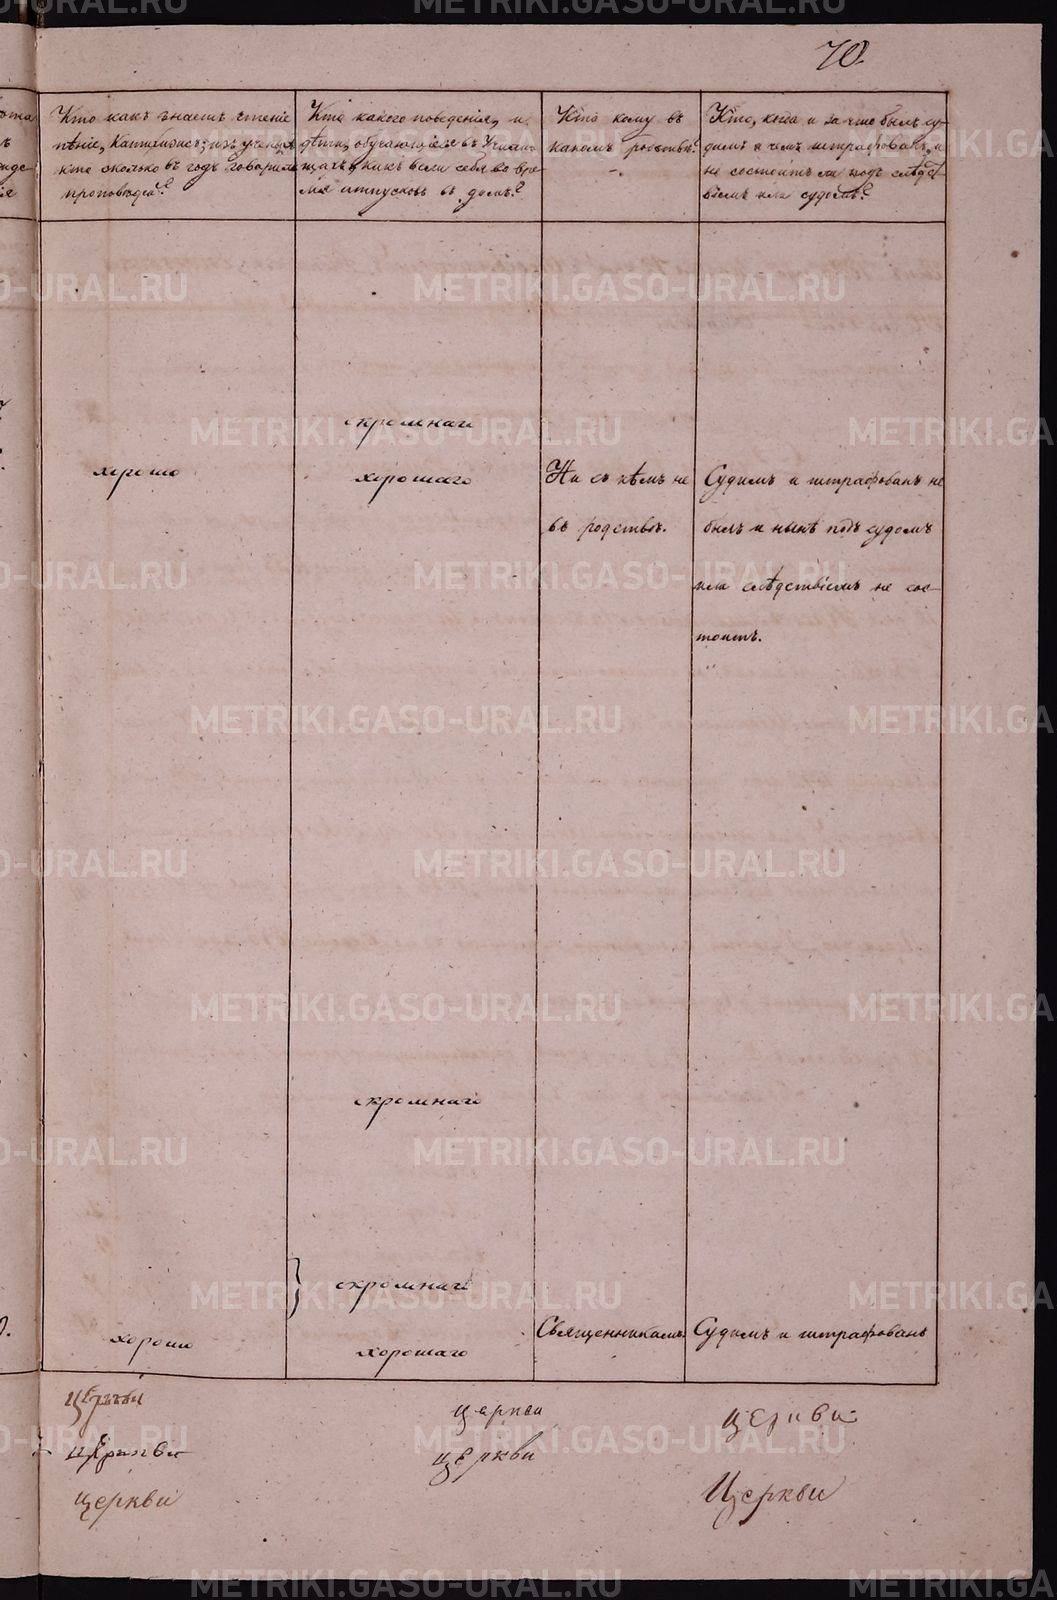 70.
Кто какъ знаетъ чтеніе
пѣніе, Катихизисъ; изъ ученыхъ
кто сколько въ годъ говорилъ
проповѣдей?
Кто какого поведенія, и
дѣти, обучающіеся въ Учили-
щахъ, какъ вели себя во вре-
мя отпусковъ въ домъ?
Кто кому въ
какомъ родствѣ?
Кто, когда и за что былъ су-
димъ и чемъ штрафованъ, и
не состоитъ ли подъ слѣдст
віемъ или судомъ?
скромнаго
хорошо
хорошаго
Ни съ кѣмъ не
въ родствѣ.
Судимъ и штрафованъ не
былъ и нынѣ подъ судомъ
или слѣдствіемъ не сос-
тоитъ.
скромнаго
скромнаго
хорошо
хорошаго
Священникамъ
Судимъ и штрафованъ
церкви
церкви
церкви
церкви
церкви
Церкви
METRIKI.GASO-URAL.RU